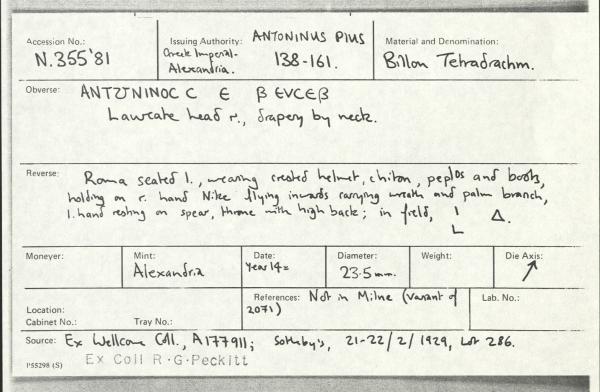 Accession No.:
N.355'81
Issuing Authority: ANTONINUS PIUS
Greek Imperial- 138-161.
Alexandria.
Material and Denomination:
Billon Tetradrachm.
Obverse: ANTѠNINOC C Є β ЄVCЄβ
Laureate head r., drapery by neck.
Reverse: Roma seated l., wearing crested helmet, chiton, peplos and boots,
holding on r. hand Nike flying inwards carrying wreath and palm branch,
l. hand resting on spear, throne with high back; in field, L Δ.
Moneyer:
Mint:
Alexandria
Date:
Year 14=
Diameter:
23.5 mm.
Weight:
Die Axis:
↗
Location:
Cabinet No.: Tray No.:
References: Not in Milne (variant of
2071)
Lab. No.:
Source: Ex Wellcome Coll., A177911; Sotheby's, 21-22/2/1929, Lot 286.
Ex Coll R.G.Peckitt
P55298 (S)